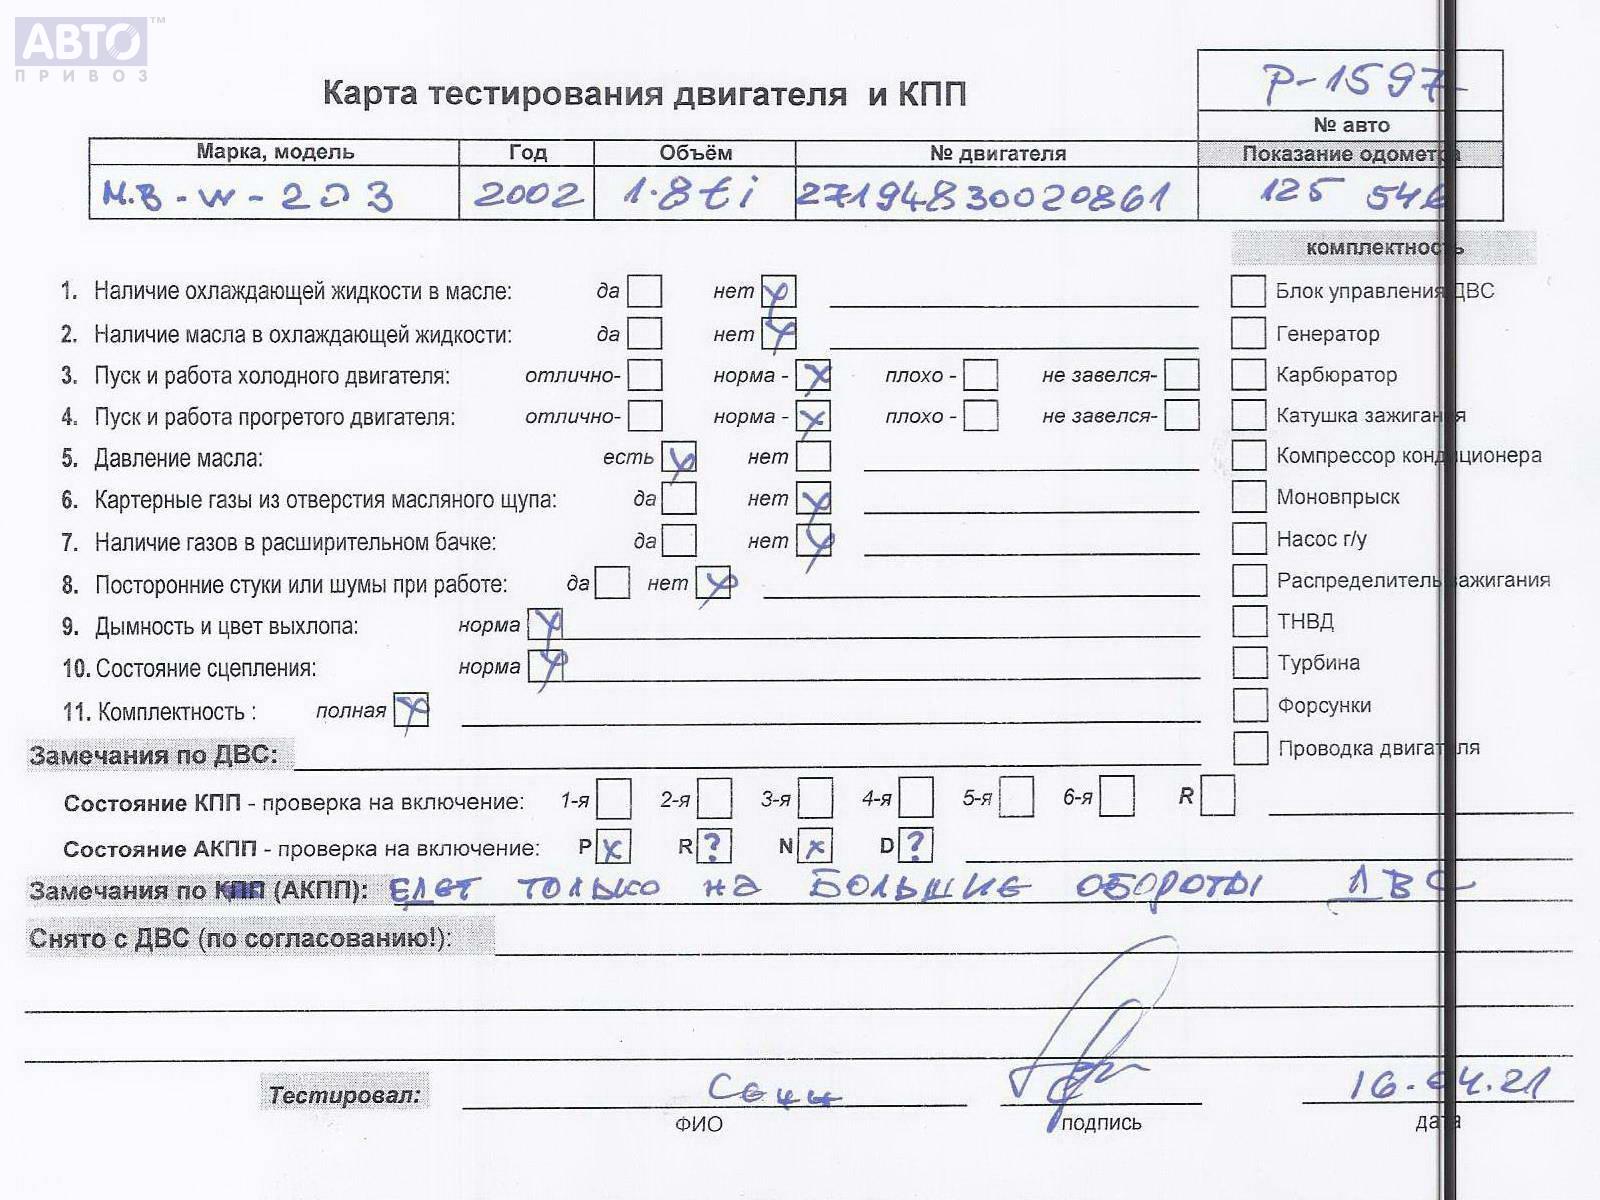 АВТО™
ПРИВОЗ
Карта тестирования двигателя и КПП
Р-1597
№ авто
Марка, модель Год Объём № двигателя Показание одометра
М.В-W-203 2002 1.8ti 27194830020861 125 546
комплектность
1. Наличие охлаждающей жидкости в масле: да нет x Блок управления ДВС
2. Наличие масла в охлаждающей жидкости: да нет x Генератор
3. Пуск и работа холодного двигателя: отлично- норма - x плохо - не завелся- Карбюратор
4. Пуск и работа прогретого двигателя: отлично- норма - x плохо - не завелся- Катушка зажигания
5. Давление масла: есть x нет Компрессор кондиционера
6. Картерные газы из отверстия масляного щупа: да нет x Моновпрыск
7. Наличие газов в расширительном бачке: да нет x Насос г/у
8. Посторонние стуки или шумы при работе: да нет x Распределитель зажигания
9. Дымность и цвет выхлопа: норма x ТНВД
10. Состояние сцепления: норма x Турбина
11. Комплектность : полная x Форсунки
Замечания по ДВС: Проводка двигателя
Состояние КПП - проверка на включение: 1-я 2-я 3-я 4-я 5-я 6-я R
Состояние АКПП - проверка на включение: P x R ? N x D ?
Замечания по КПП (АКПП): Едет только на большие обороты ДВС
Снято с ДВС (по согласованию!):
Тестировал: 16.04.21
ФИО подпись дата